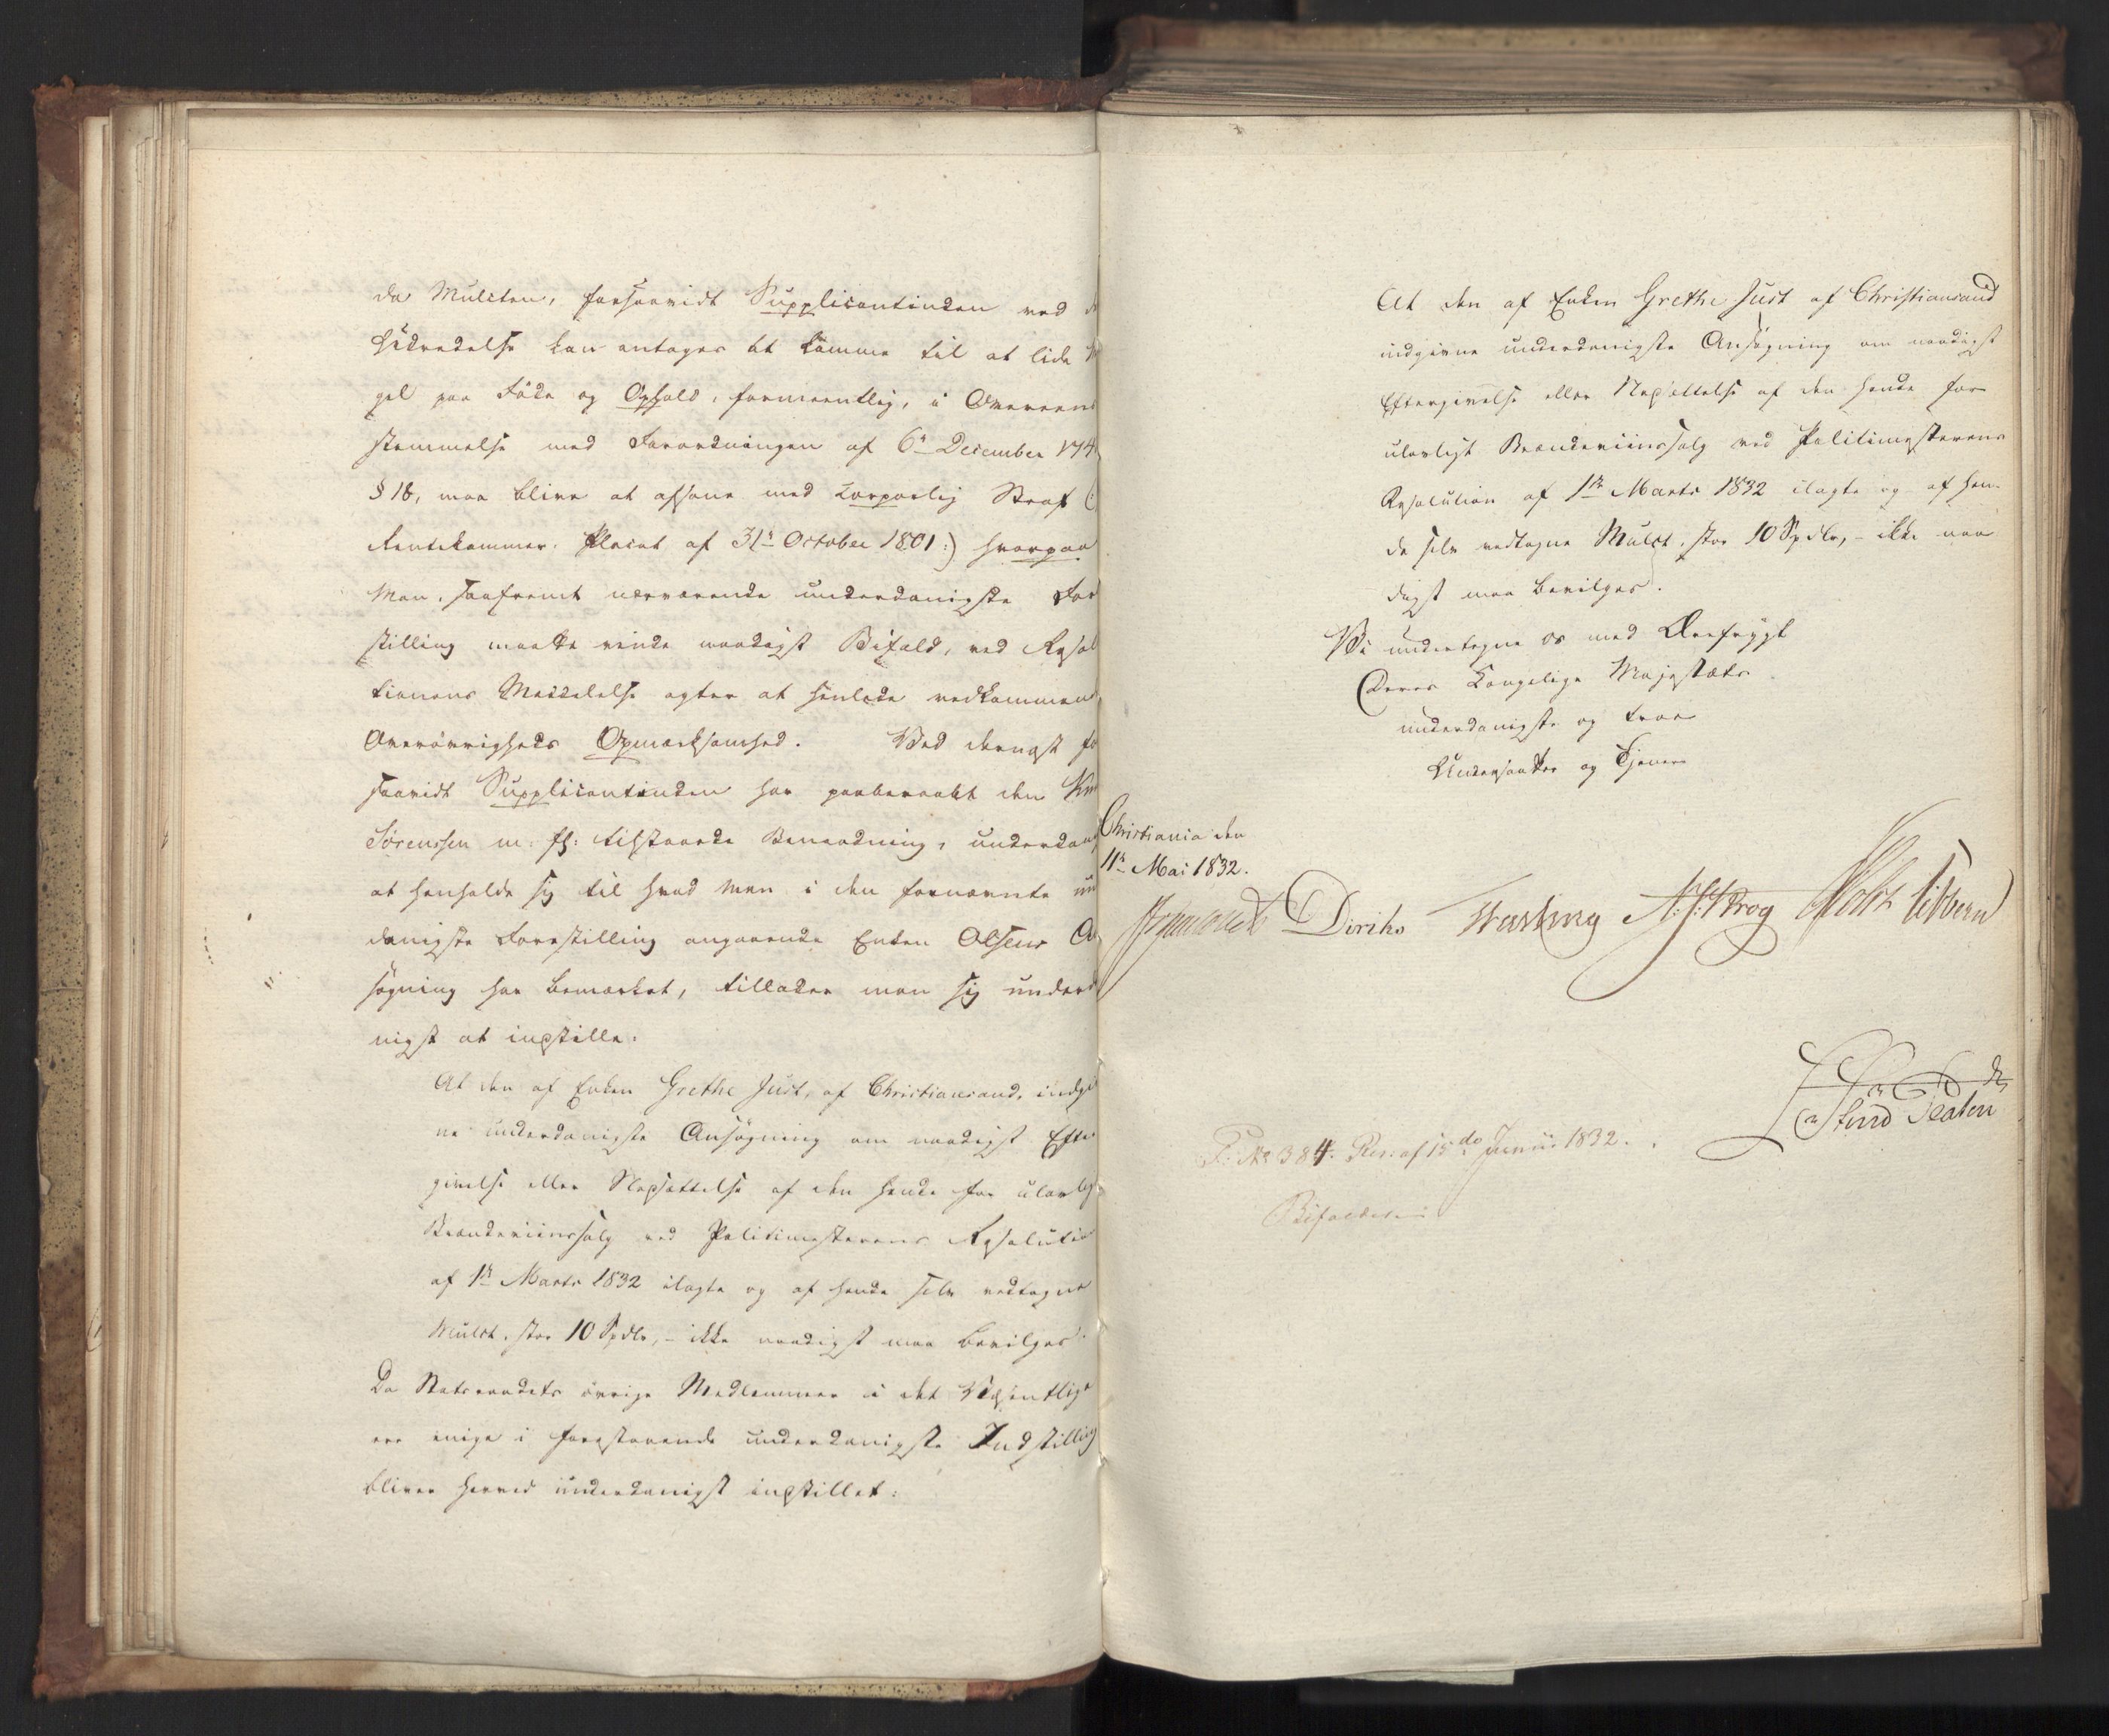 da Mulcten, forsaavidt Supplicantinden ved d
Udredelse kan antages at komme til at lide M
gel paa Føde og Ophold, formeentlig, i Overeens
stemmelse med Forordningen af 6te December 174
§ 18, maa blive at afsone med corporlig Straf (:
Rentekammer-Placat af 31te October 1801:) hvorpaa
Man, saafremt nærværende underdanigste Fore
stilling maatte vinde naadigst Bifald, ved Resol
tionens Meddelelse agter at henlede vedkommend
Overøvrigheds Opmærksomhed. Ved dernæst fo
saavidt Supplicantinden har paaberaabt den
Sørenssen m: fl: tilstaaede Benaadning, underdan
at henholde sig til hvad man i den fornævnte un
danigste Forestilling angaaende Enken Olsens An
søgning har bemærket, tillader man sig underd
nigst at indstille:
At den af Enken Grethe Just, af Christiansand, indgi
ne underdanigste Ansøgning om naadigst Efter
givelse eller Nedsættelse af den hende for ulovlig
Brændeviinssalg ved Politimesterens Resolution
af 1te Marts 1832 ilagte og af hende selv vedtagne
Mulct, stor 10 Spdlr, - ikke naadigst maa bevilges.
Da Statsraadets øvrige Medlemmer i det Væsentlige
ere enige i forestaaende underdanigste Indstilling
bliver herved underdanigst indstillet:
At den af Enken Grethe Just af Christiansand
indgivne underdanigste Ansøgning om naadigst
Eftergivelse eller Nedsættelse af den hende for
ulovligt Brændeviinssalg ved Politimesterens
Resolution af 1te Marts 1832 ilagte og af hen-
de selv vedtagne Mulct, stor 10 Spdlr, - ikke naa
digst maa bevilges.
Vi undertegne os med Ærefrygt
Deres Kongelige Majestæts
underdanigste og troe
Undersaatter og Tjenere
Christiania den
11te Mai 1832.
Diriks Fasting Krog Holst Vibe
F: No 384. Res: af 15de Junii 1832.
Bifaldes: